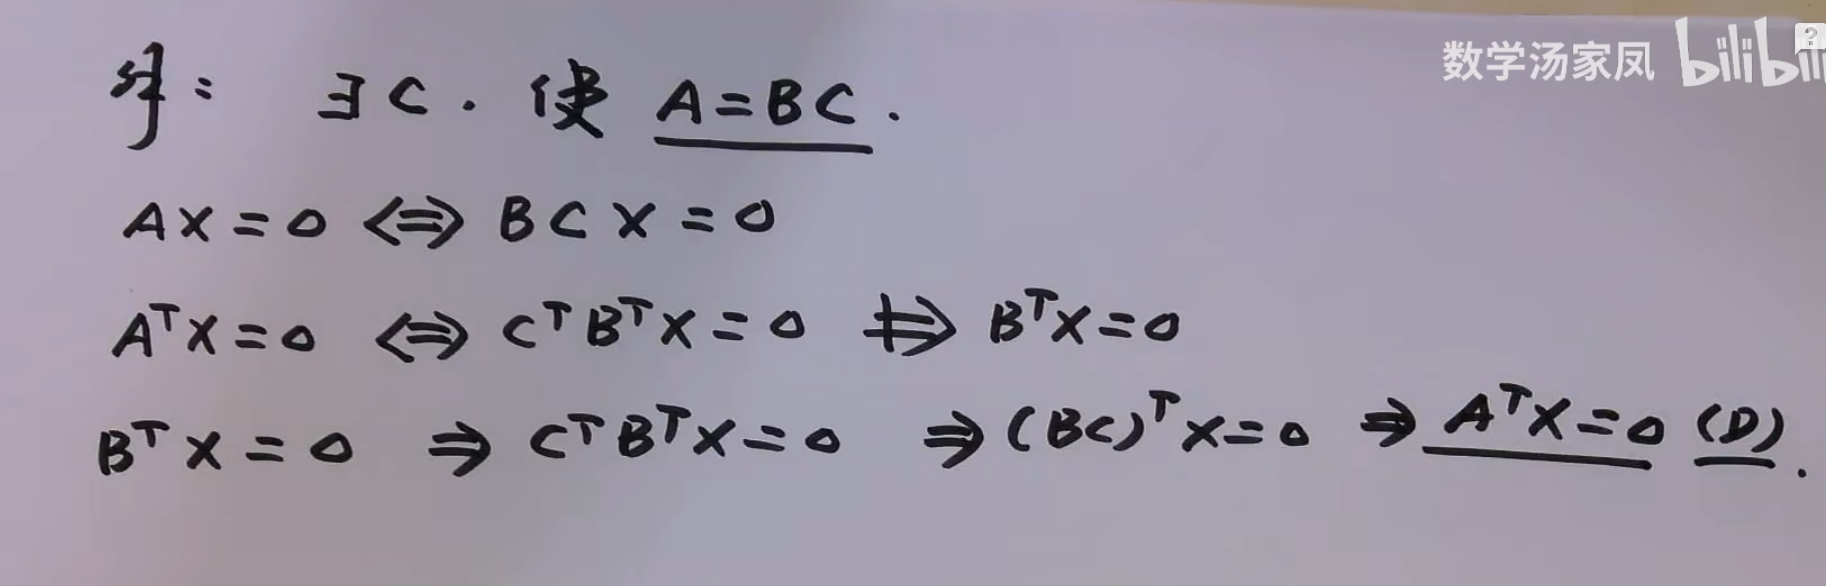 数学汤家凤 bilibili
解: ∃C. 使 A=BC.
AX=0 ⇔ BCX=0
AᵀX=0 ⇔ CᵀBᵀX=0 ⇏ BᵀX=0
BᵀX=0 ⇒ CᵀBᵀX=0 ⇒ (BC)ᵀX=0 ⇒ AᵀX=0 (D).